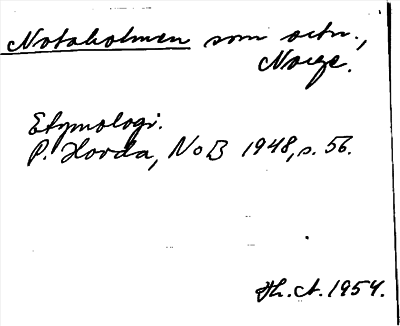 Notaholmen som ortn.,
Norge.
Etymologi.
P. Hovda, NoB 1948, s. 56.
Th. A. 1954.